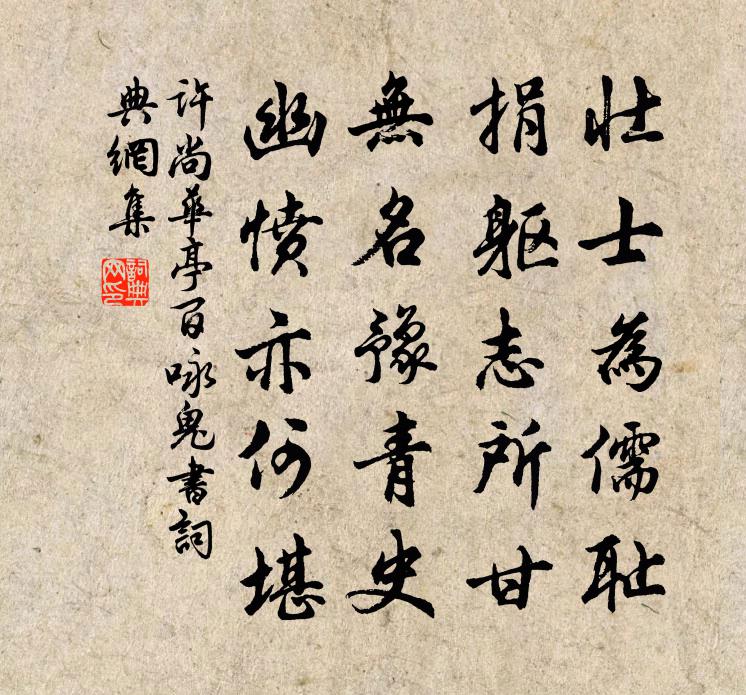 壮士為儒耻
捐躯志所甘
無名豫青史
幽憤亦何堪
許尚華亭百咏鬼書詞
典網集
詞典網印